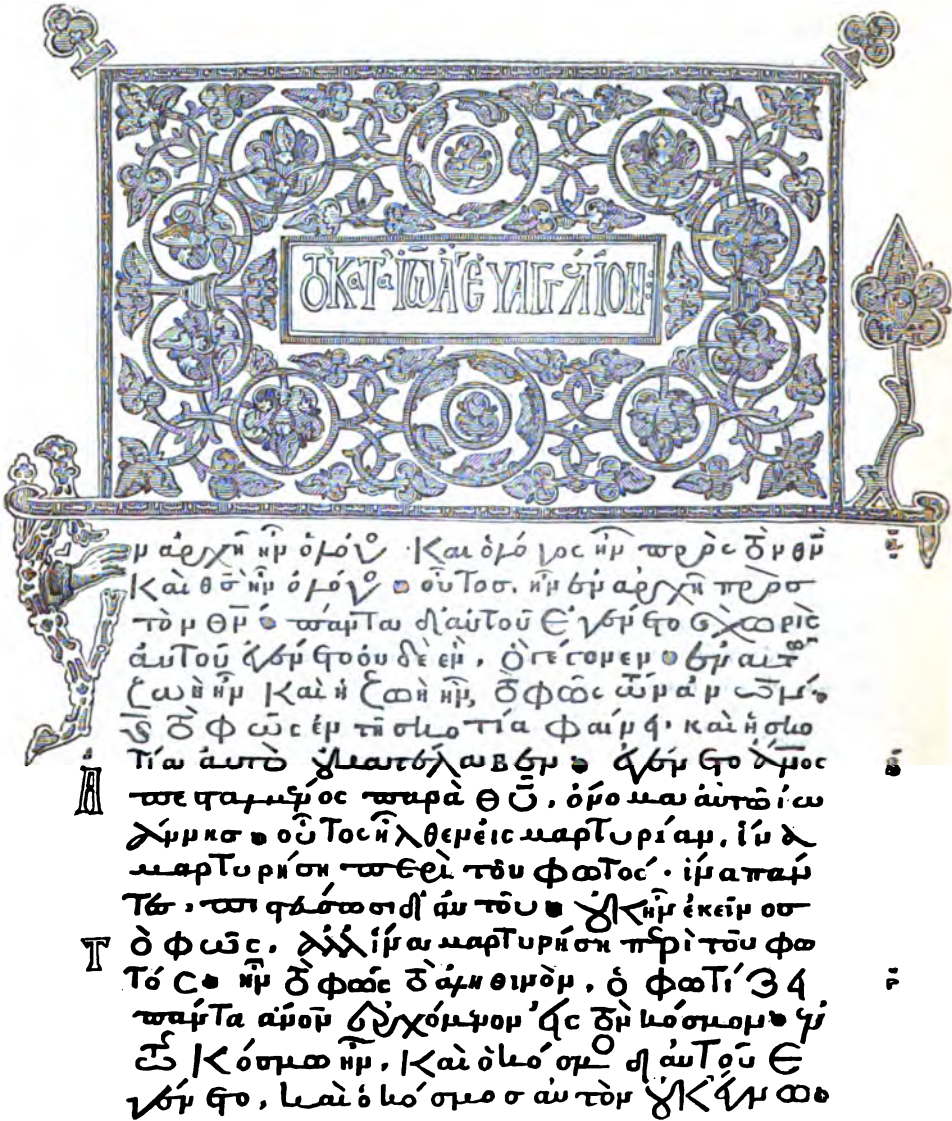 τὸ κατὰ ἰωά εὐαγγέλιον:
ν ἀρχῆ ἦν ὁ λόγος· καὶ ὁ λόγος ἦν πρὸς τὸν θν
καὶ θσ ἦν ὁ λόγος· οὗτοσ, ἦν ἐν ἀρχῆ πρὸσ
τὸν θν· πάντα δι αὐτοῦ ἐγένετο· χωρὶσ
αὐτοῦ ἐγένετο οὐδὲ ἕν, ὃ γέγονεν· ἐν αὐτῶ
ζωὴ ἦν καὶ ἡ ζωὴ ἦν, τὸ φῶς τῶν ἀνῶν·
καὶ τὸ φῶς ἐν τῆ σκοτία φαίνει· καὶ ἡ σκο
τία αὐτὸ οὐ κατέλαβεν· ἐγένετο ἄνος
ἀπεσταλμένος παρὰ θῦ, ὄνομα αὐτῶ ἰω
άννησ· οὗτος ἦλθεν εἰς μαρτυρίαν, ἵνα
μαρτυρήση περὶ τοῦ φωτός· ἵνα πάν
τεσ, πιστεύσωσι δι αὐτοῦ· οὐκ ἦν ἐκεῖνοσ
τὸ φῶς, ἀλλ ἵνα μαρτυρήση περὶ τοῦ φω
τός· ἦν τὸ φῶς τὸ ἀληθινὸν, ὃ φωτίζει
πάντα ἄνον ἐρχόμενον εἰς τὸν κόσμον· ἐν
τῶ κόσμω ἦν, καὶ ὁ κόσμος δι αὐτοῦ ἐ
γένετο, καὶ ὁ κόσμοσ αὐτὸν οὐκ ἔγνω·